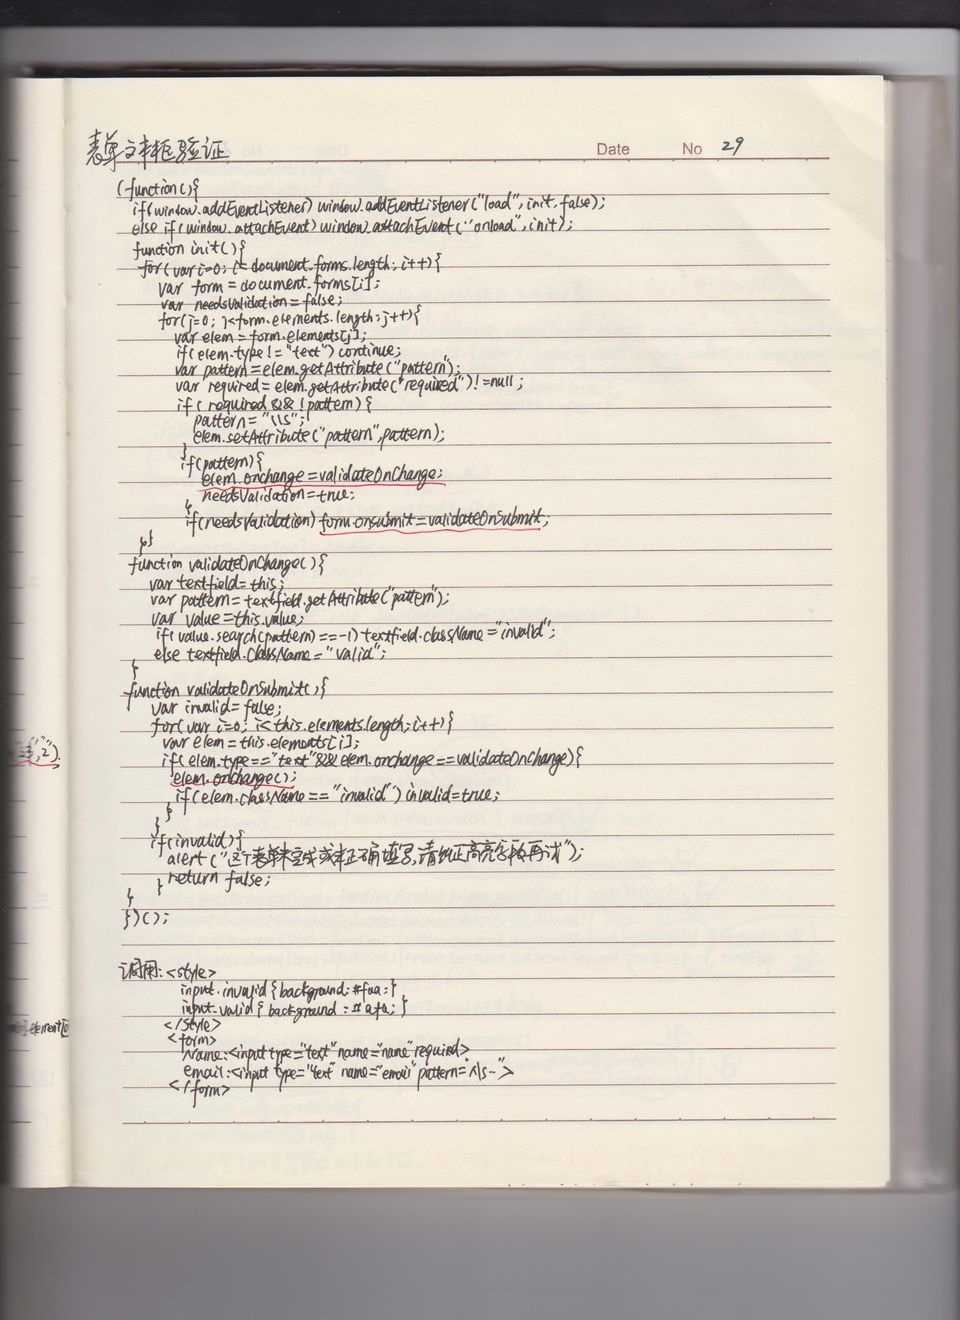 表单文本框验证 Date No 29
(function(){
if(window.addEventListener) window.addEventListener("load",init,false);
else if(window.attachEvent) window.attachEvent("onload",init);
function init(){
for(var i=0; i= document.forms.length; i++){
var form = document.forms[i];
var needsValidation = false;
for(j=0; j<form.elements.length; j++){
var elem = form.elements[j];
if(elem.type != "text") continue;
var pattern=elem.getAttribute("pattern");
var required = elem.getAttribute("required") != null;
if( required && !pattern) {
pattern = "\\S";
elem.setAttribute("pattern",pattern);
}
if(pattern){
elem.onchange=validateOnChange;
needsValidation=true;
}
if(needsValidation) form.onsubmit=validateOnSubmit;
}}
function validateOnChange(){
var textfield=this;
var pattern=textfield.getAttribute("pattern");
var value=this.value;
if(value.search(pattern)==-1) textfield.className="invalid";
else textfield.className="valid";
}
function validateOnSubmit(){
var invalid=false;
for(var i=0; i<this.elements.length; i++){
var elem=this.elements[i];
if(elem.type=="text" && elem.onchange==validateOnChange){
elem.onchange();
if(elem.className=="invalid") invalid=true;
}
}
if(invalid){
alert("这个表单未完成或未正确填写,请纠正高亮字段再试");
return false;
}
}
})();
调用:<style>
input.invalid{background:#faa;}
input.valid{background:#afa;}
</style>
<form>
Name:<input type="text" name="name" required>
email:<input type="text" name="email" pattern="^\s~">
</form>
,2).
element[